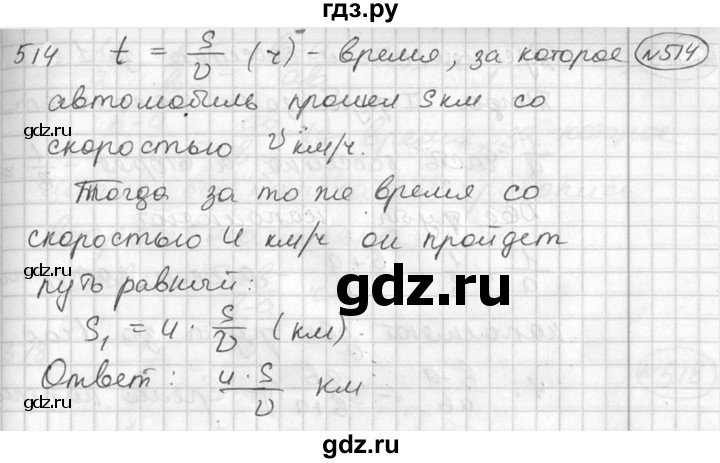 гдз.ру
514 t = s/v (ч) - время, за которое №514
автомобиль прошел s км со
gdz.ru gdz.ru
скоростью v км/ч.
Тогда за то же время со
скоростью u км/ч он пройдет
путь равный:
gdz.ru
gdz.ru
S₁ = u · s/v (км)
Ответ: u · s/v км
gdz.ru
gdz.ru